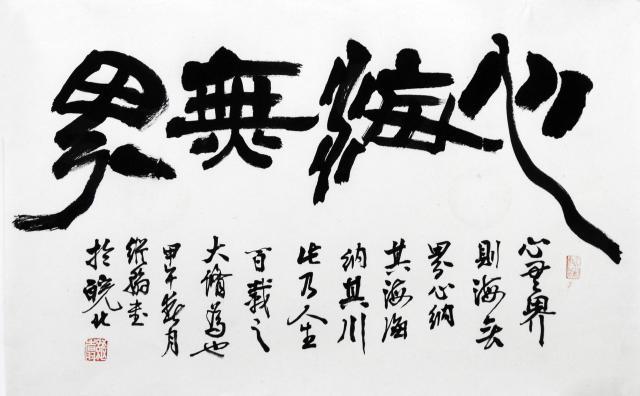 心海無界
心無界
則海无
界心納
其海海
納其川
此乃人生
百載之
大脩為也
甲午 月
書
於皖北